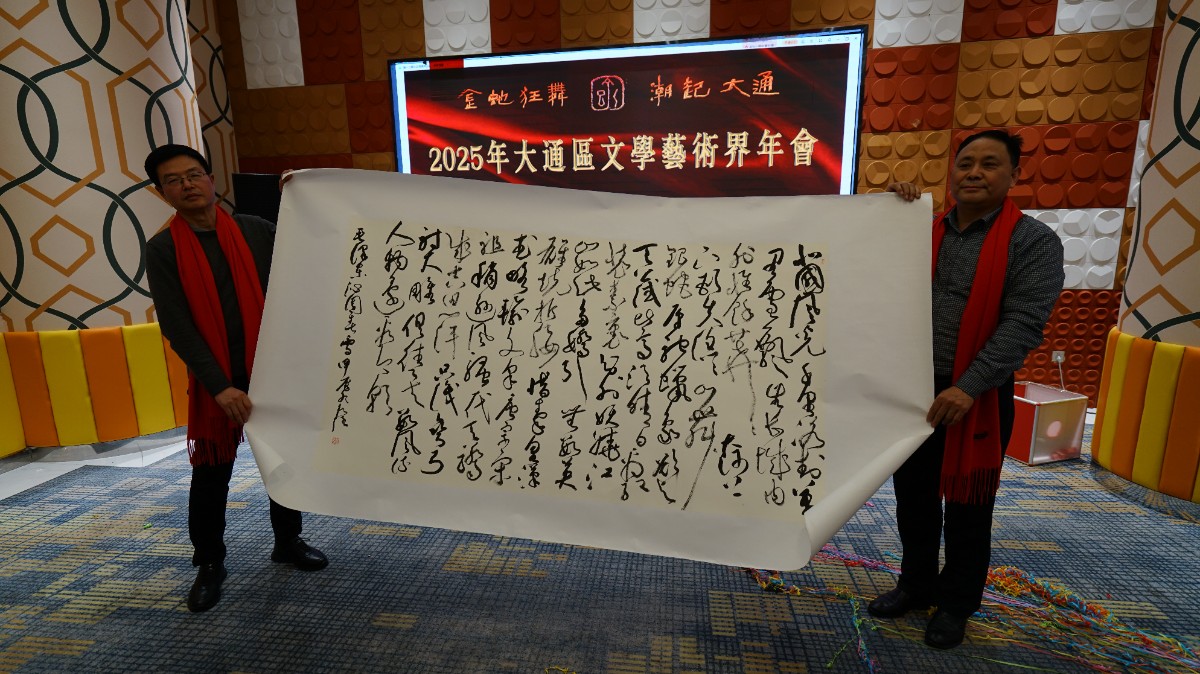 金蛇狂舞 潮起大通
2025年大通區文學藝術界年會
北國風光千里冰封萬
里雪飄望長城内
外惟餘莽莽
大河上
下頓失滔滔山舞
銀蛇原馳蠟象欲与
天公試比高須晴日看紅
裝素裹分外妖嬈江
山如此多嬌引無數英
雄競折腰惜秦皇漢
武略輸文采唐宗宋
祖稍遜風騷一代天驕
成吉思汗只識彎弓
射大雕俱往矣數風流
人物還看今朝
毛澤東沁園春雪甲辰冬